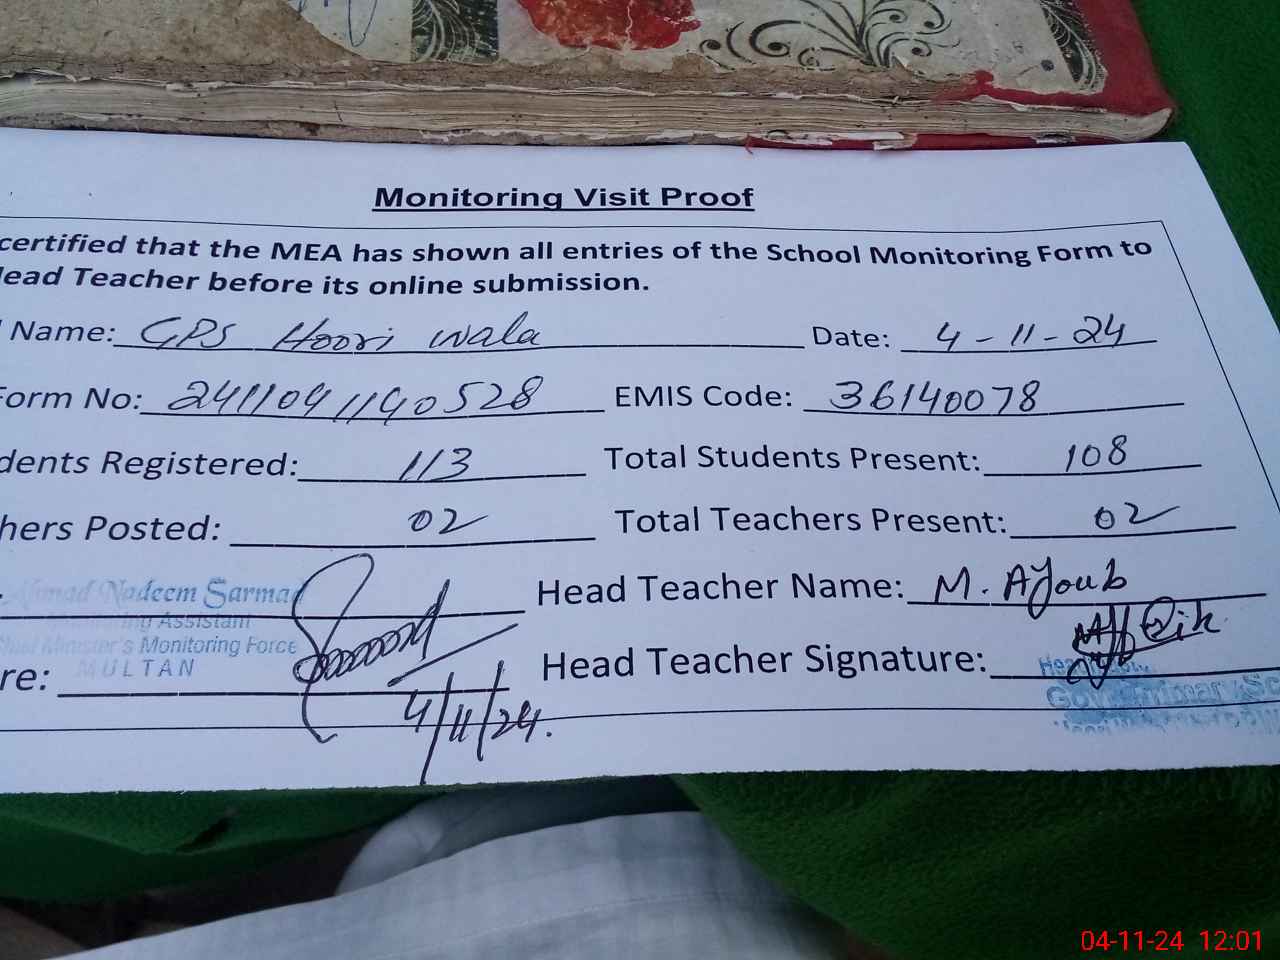 Monitoring Visit Proof
certified that the MEA has shown all entries of the School Monitoring Form to
Head Teacher before its online submission.
Name: GPS Hoori wala Date: 4-11-24
Form No: 2411041140528 EMIS Code: 36140078
dents Registered: 113 Total Students Present: 108
hers Posted: 02 Total Teachers Present: 02
Ahmad Nadeem Sarmad Head Teacher Name: M. AYoub
Monitoring Assistant
Chief Minister's Monitoring Force
MULTAN
re: Head Teacher Signature:
4/11/24.
04-11-24 12:01